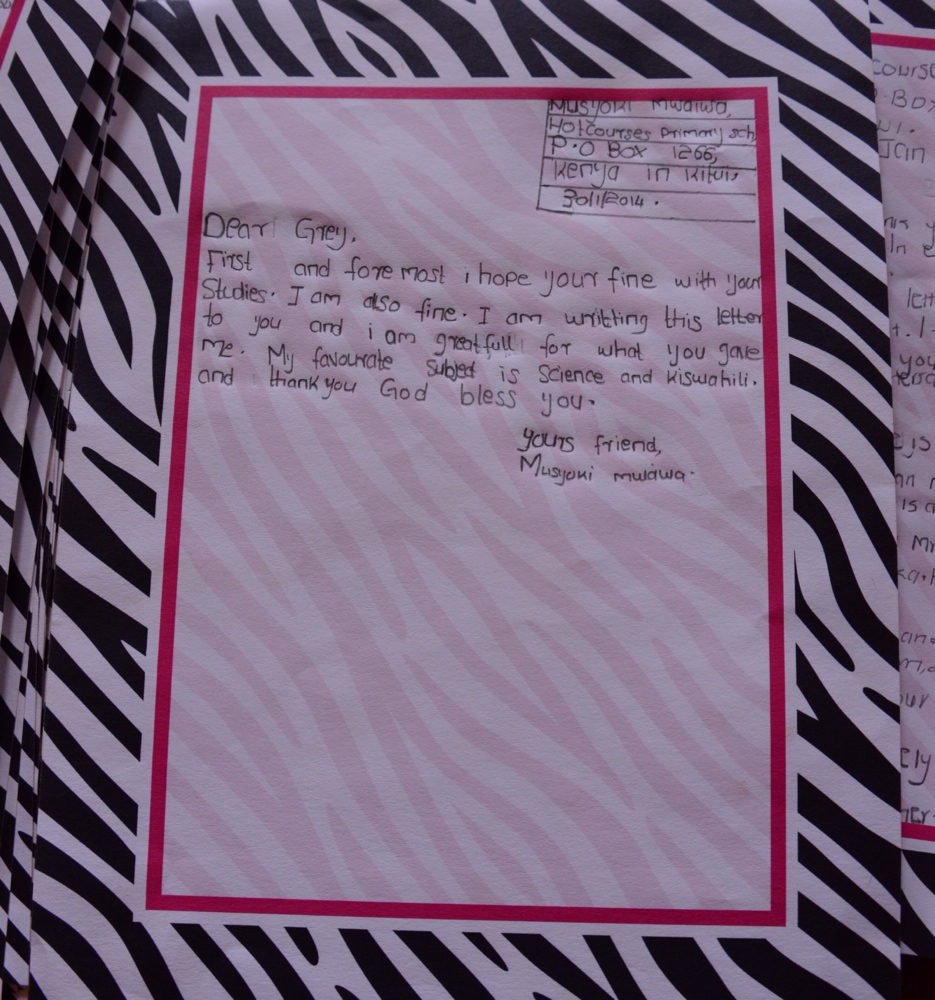 Musyoki Mwaiwa,
Hotcourses primary sch
P.O Box 1266,
Kenya in Kitui,
30/1/2014.
Dear Grey,
First and fore most i hope your fine with your
Studies. I am also fine. I am writting this letter
to you and i am greatfull for what you gave
me. My favourate Subject is Science and Kiswahili.
and i thank you God bless you.
yours friend,
Musyoki mwawa.
course
Box
Jan
In
lett
you
is
Mr
and
our
ely